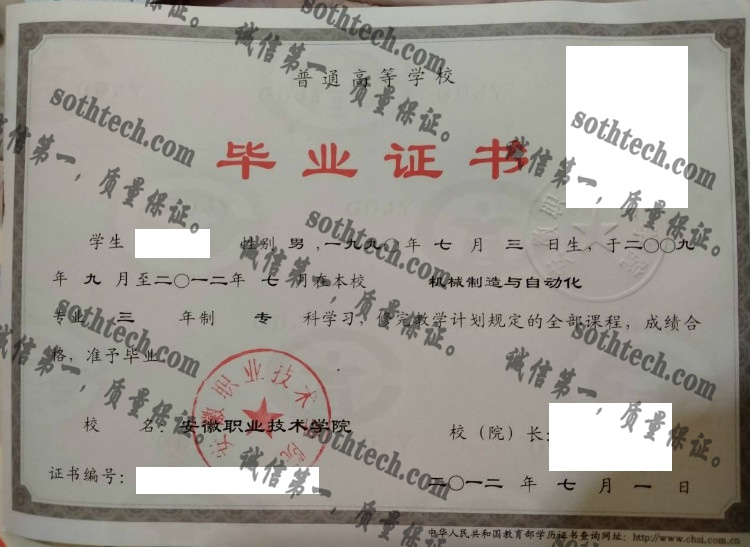 普通高等学校
毕业证书
学生 性别 男，一九九〇年 七 月 三 日生，于二〇〇九
年 九 月至二〇一二年 七 月在本校 机械制造与自动化
专业 三 年制 专 科学习，修完教学计划规定的全部课程，成绩合
格，准予毕业。
校 名：安徽职业技术学院
校（院）长：
证书编号：
二〇一二 年 七 月 一 日
中华人民共和国教育部学历证书查询网址：http://www.chsi.com.cn
安徽职业技术学院
sothtech.com
诚信第一，质量保证。
sothtech.com
诚信第一，质量保证。
sothtech.com
诚信第一，质量保证。
sothtech.com
诚信第一，质量保证。
sothtech.com
诚信第一，质量保证。
sothtech.com
诚信第一，质量保证。
sothtech.com
诚信第一，质量保证。
sothtech.com
诚信第一，质量保证。